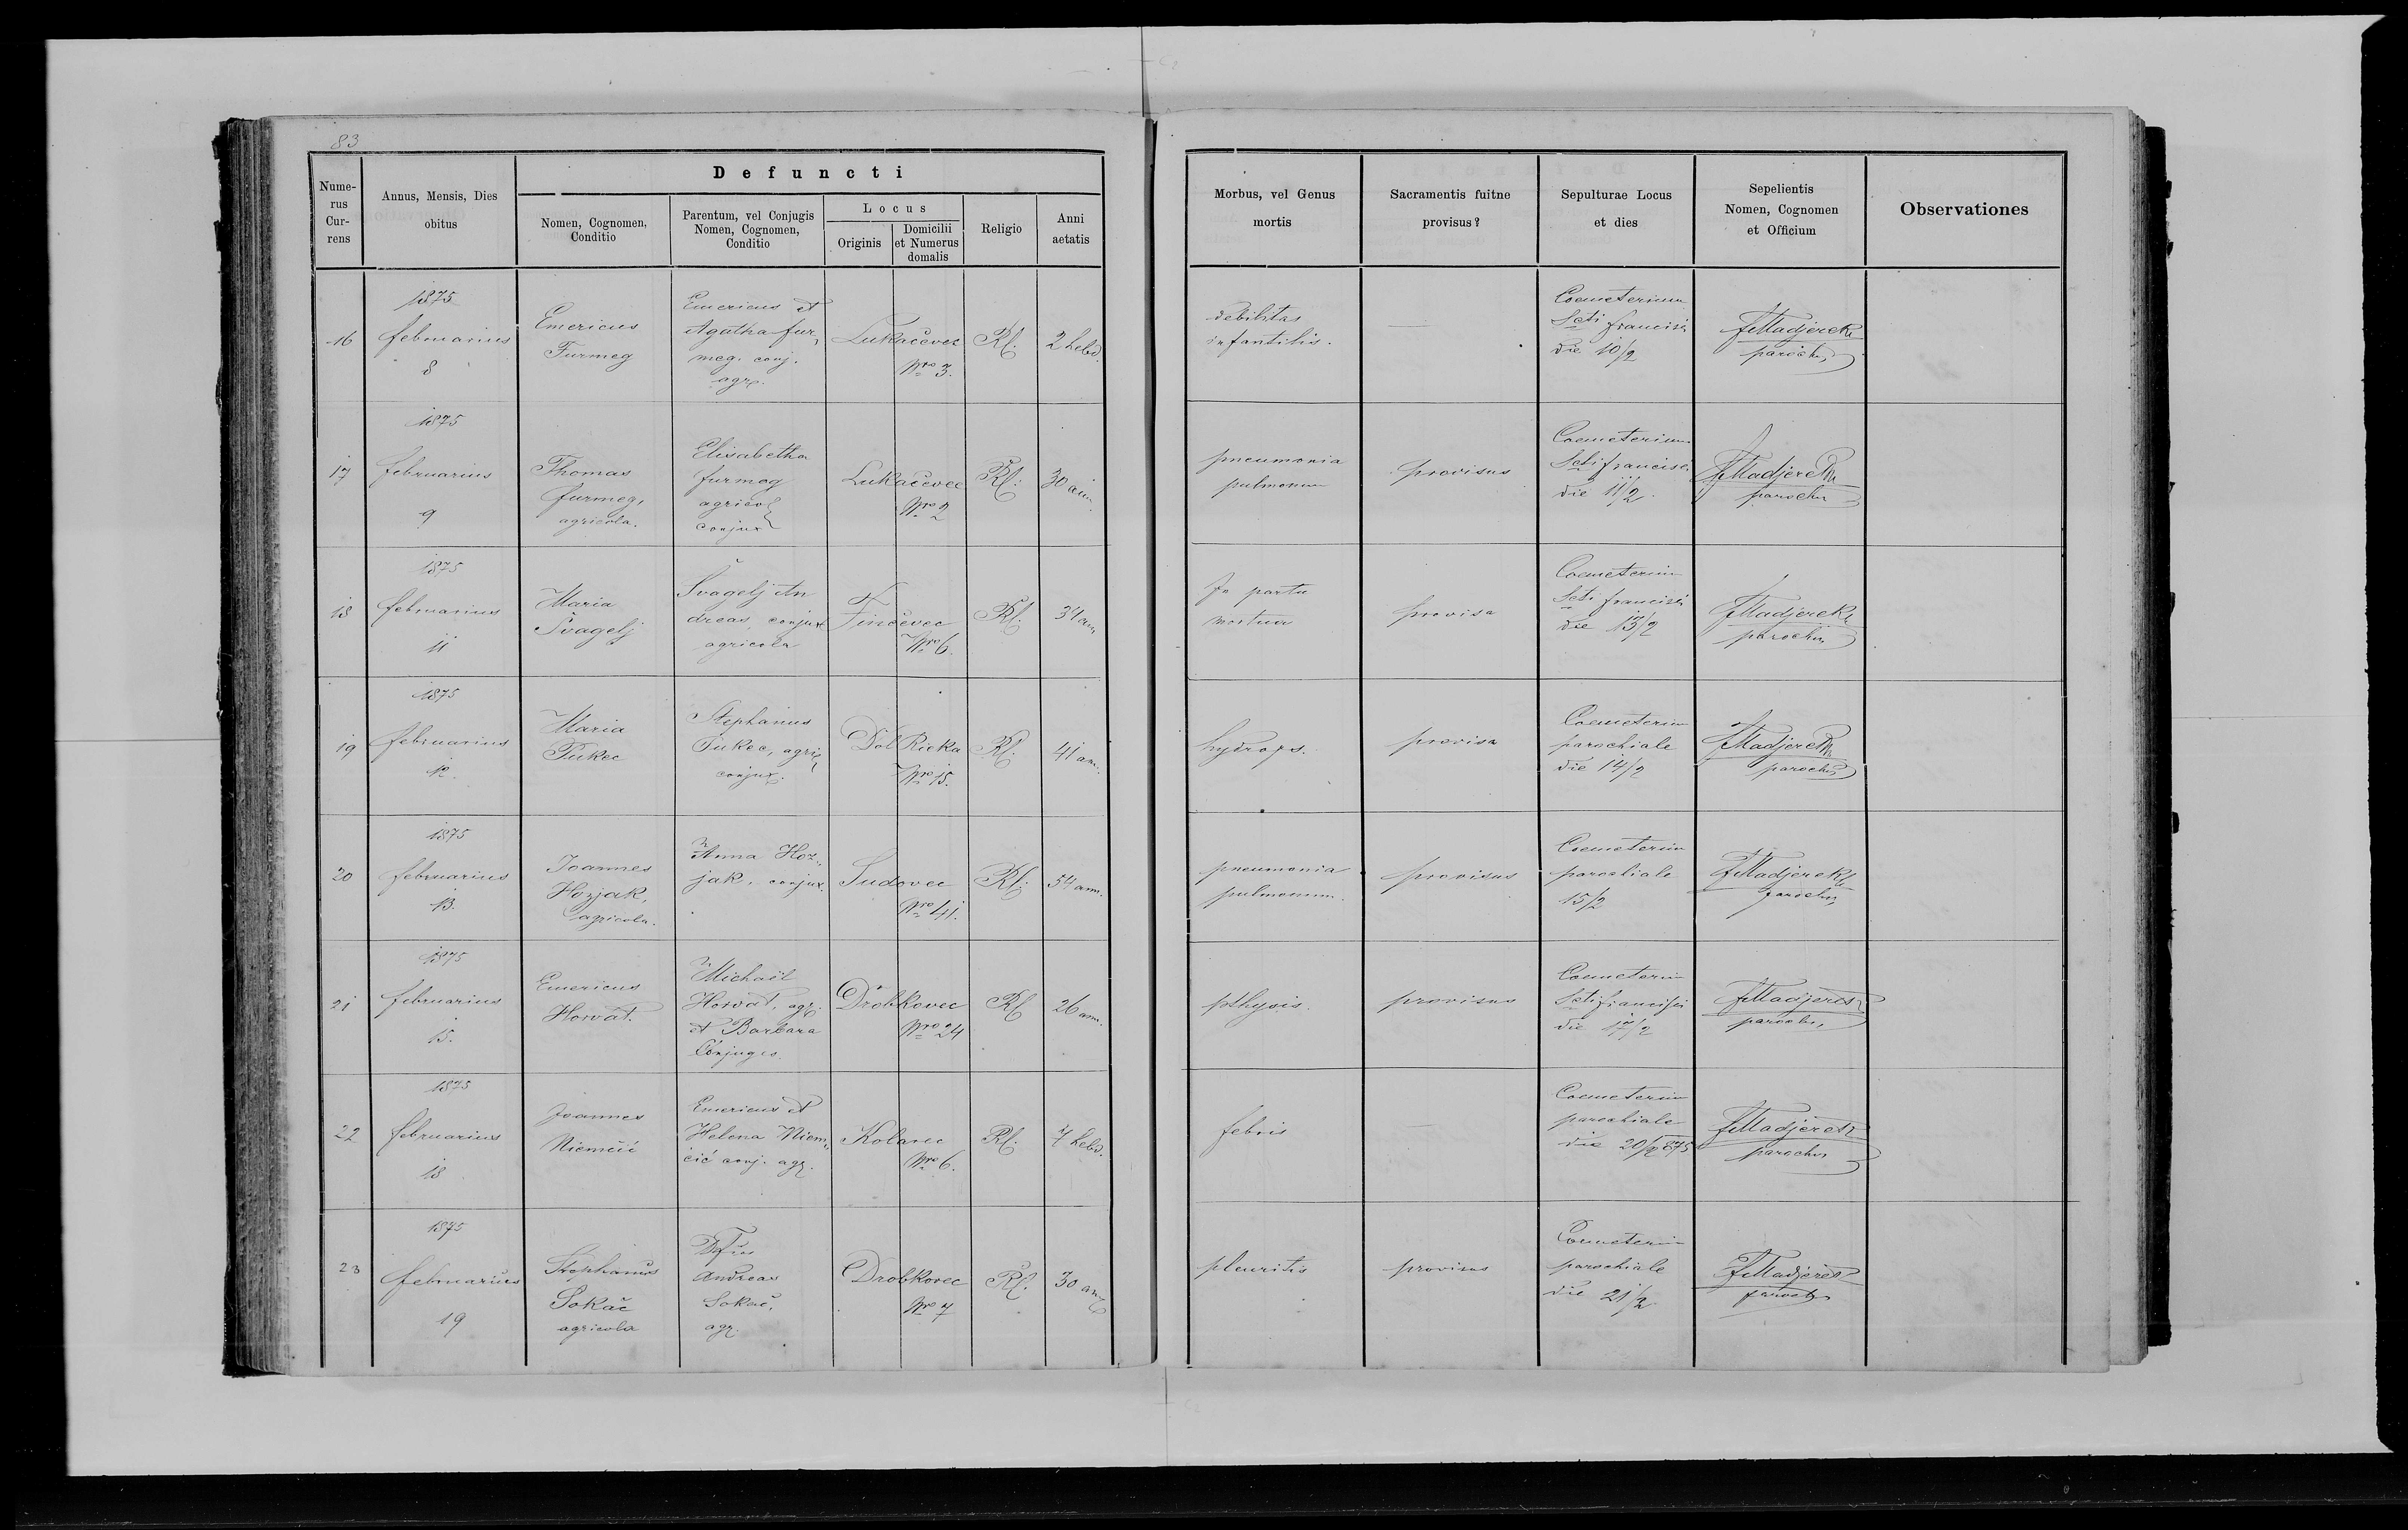 83
Defuncti
Nume-
rus
Cur-
rens
Annus, Mensis, Dies
obitus
Nomen, Cognomen,
Conditio
Parentum, vel Conjugis
Nomen, Cognomen,
Conditio
Locus
Originis
Domicilii
et Numerus
domalis
Religio
Anni
aetatis
Morbus, vel Genus
mortis
Sacramentis fuitne
provisus?
Sepulturae Locus
et dies
Sepelientis
Nomen, Cognomen
et Officium
Observationes
16
1875
februarius
8
Emericus
Furmeg
Emericus et
Agatha fur-
meg. conj.
agr.
Lukačevec
Nro 3.
Rk.
2 hebd.
debilitas
infantilis.
—
Coemeterium
Scti francisci
die 10/2
FMadjerek
parochus
17
1875
februarius
9
Thomas
furmeg,
agricola.
Elisabetha
furmeg
agricol
conjux
Lukačevec
Nro 2
Rk.
30 ann.
pneumonia
pulmonum
provisus
Coemeterium
Scti francisci
die 11/2.
FMadjerek
parochus
18
1875
februarius
11
Maria
Švagelj
Švagelj An
dreas, conjux
agricola
Finčevec
Nro 6.
Rk.
34 ann
In partu
mortua
provisa
Coemeterium
Scti francisci
die 13/2
FMadjerek
parochus
19
1875
februarius
12.
Maria
Pukec
Stephanus
Pukec, agric
conjux.
Dol Rieka
Nro 15.
Rk.
41 ann.
hydrops.
provisa
Coemeterium
parochiale
die 14/2
FMadjerek
parochus
20
1875
februarius
13.
Joannes
Hozjak,
agricola.
Anna Hoz-
jak, conjux.
Sudovec
Nro 41.
Rk.
54 ann.
pneumonia
pulmonum.
provisus
Coemeterium
parochiale
15/2
FMadjerek
parochus
21
1875
februarius
15.
Emericus
Horvat.
Michaël
Horvat, agr.
et Barbara
Conjuges.
Drobkovec
Nro 24
Rk
26 ann.
pthysis.
provisus
Coemeterium
Scti francisci
die 17/2
FMadjerek
parochus
22
1875
februarius
18
Joannes
Niemčić
Emericus et
Helena Niem-
čić conj. agr.
Kolarec
Nro 6.
Rk.
7 hebd.
febris
—
Coemeterium
parochiale
die 20/2 875
FMadjerek
parochus
23
1875
februarius
19
Stephanus
Sokač
agricola
Andreas
Sokač,
agr.
Drobkovec
Nro 7
Rk.
30 ann
pleuritis
provisus
Coemeterium
parochiale
die 21/2
FMadjerek
parochus